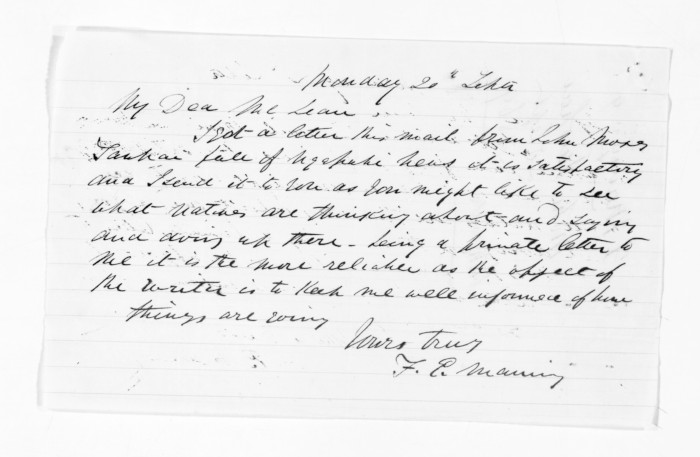 Monday 20th Septr
My Dear McLean
I got a letter this mail from John Moses
Tawhai full of Ngapuhi news it is satisfactory
and I send it to you as you might like to see
what natives are thinking about and saying
and doing up there - being a private letter to
me it is the more reliable as the object of
the writer is to keep me well informed of how
things are going
Yours truly
F. E. Maning